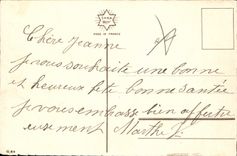 MADE IN FRANCE
Chère Jeanne
je vous souhaite une bonne
et heureuse fête bonne santée
je vous embrasse bien affectu
eusement Marthe